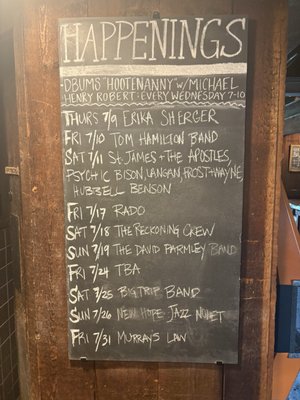 HAPPENINGS
DBUMS' HOOTENANNY W/ MICHAEL
HENRY ROBERT - EVERY WEDNESDAY 7-10
THURS 7/9 ERIKA SHERGER
FRI 7/10 TOM HAMILTON BAND
SAT 7/11 ST. JAMES + THE APOSTLES,
PSYCHIC BISON, LANGAN, FROST + WAYNE,
HUBBELL BENSON
FRI 7/17 RADO
SAT 7/18 THE RECKONING CREW
SUN 7/19 THE DAVID PARMLEY BAND
FRI 7/24 TBA
SAT 7/25 BIG TRIP BAND
SUN 7/26 NEW HOPE JAZZ NONET
FRI 7/31 MURRAYS LAW